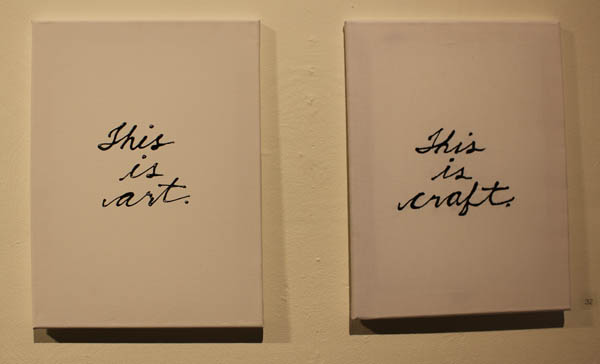 This
is
art.
This
is
craft.
32